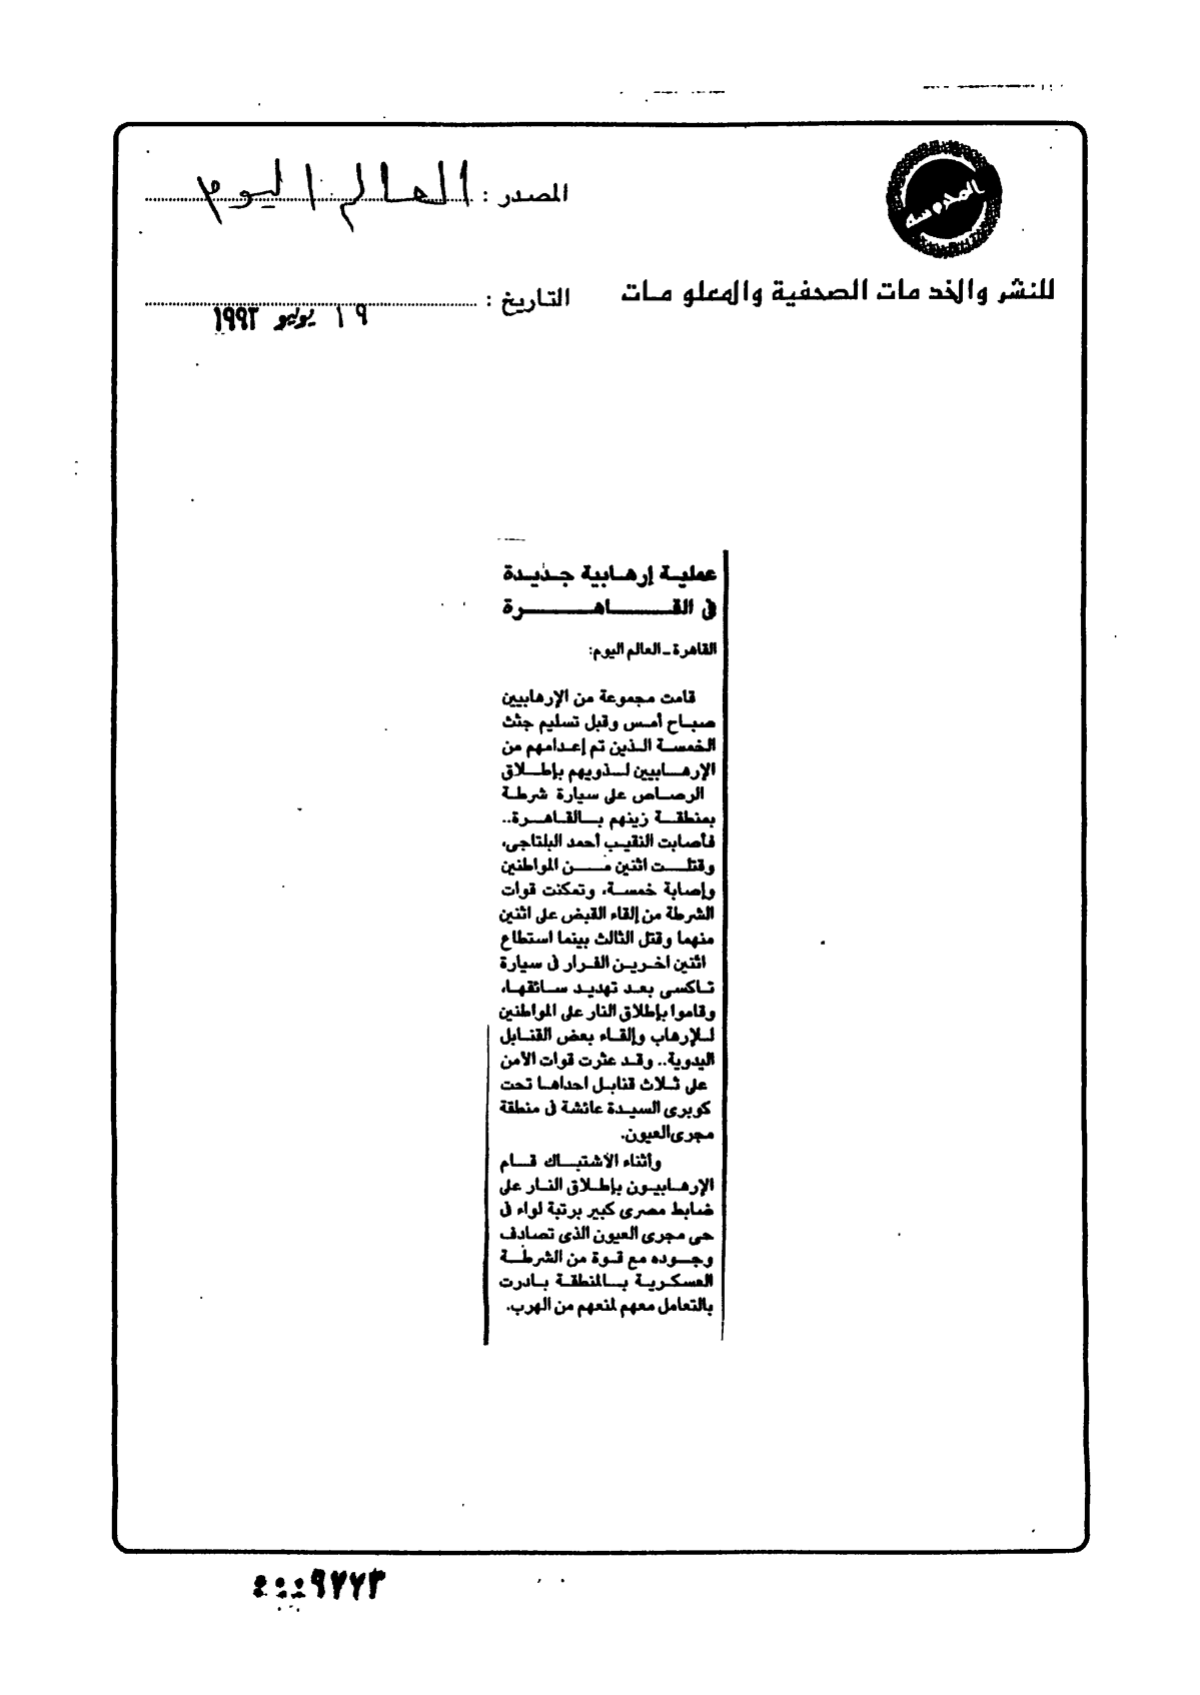 المدوسه
المصدر : العالم اليوم
للنشر والخدمات الصحفية والمعلومات
التاريخ :
١٩ يوليو ١٩٩٣
عملية إرهابية جديدة
فى القاهرة
القاهرة - العالم اليوم:
قامت مجموعة من الإرهابيين
صباح أمس وقبل تسليم جثث
الخمسة الذين تم إعدامهم من
الإرهابيين لذويهم بإطلاق
الرصاص على سيارة شرطة
بمنطقة زينهم بالقاهرة..
فأصابت النقيب أحمد البلتاجى،
وقتلت اثنين من المواطنين
وإصابة خمسة، وتمكنت قوات
الشرطة من إلقاء القبض على اثنين
منهما وقتل الثالث بينما استطاع
اثنين اخرين الفرار فى سيارة
تاكسى بعد تهديد سائقها،
وقاموا بإطلاق النار على المواطنين
للإرهاب وإلقاء بعض القنابل
اليدوية.. وقد عثرت قوات الأمن
على ثلاث قنابل احداها تحت
كوبرى السيدة عائشة فى منطقة
مجرى العيون.
وأثناء الأشتباك قام
الإرهابيون بإطلاق النار على
ضابط مصرى كبير برتبة لواء فى
حى مجرى العيون الذى تصادف
وجوده مع قوة من الشرطة
العسكرية بالمنطقة بادرت
بالتعامل معهم لمنعهم من الهرب.